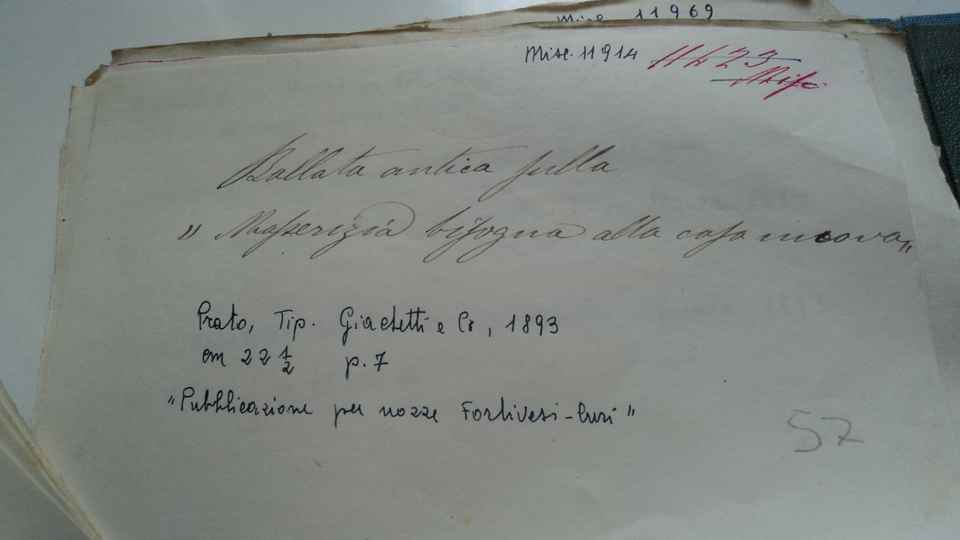 Misc 11969
Misc. 11914
1423
Misc.
Ballata antica sulla
„ Masserizia bisogna alla casa nuova„
Prato, Tip. Giachetti e C°, 1893
cm 22 1/2 p. 7
"Pubblicazione per nozze Fortivesi-Curi"
57